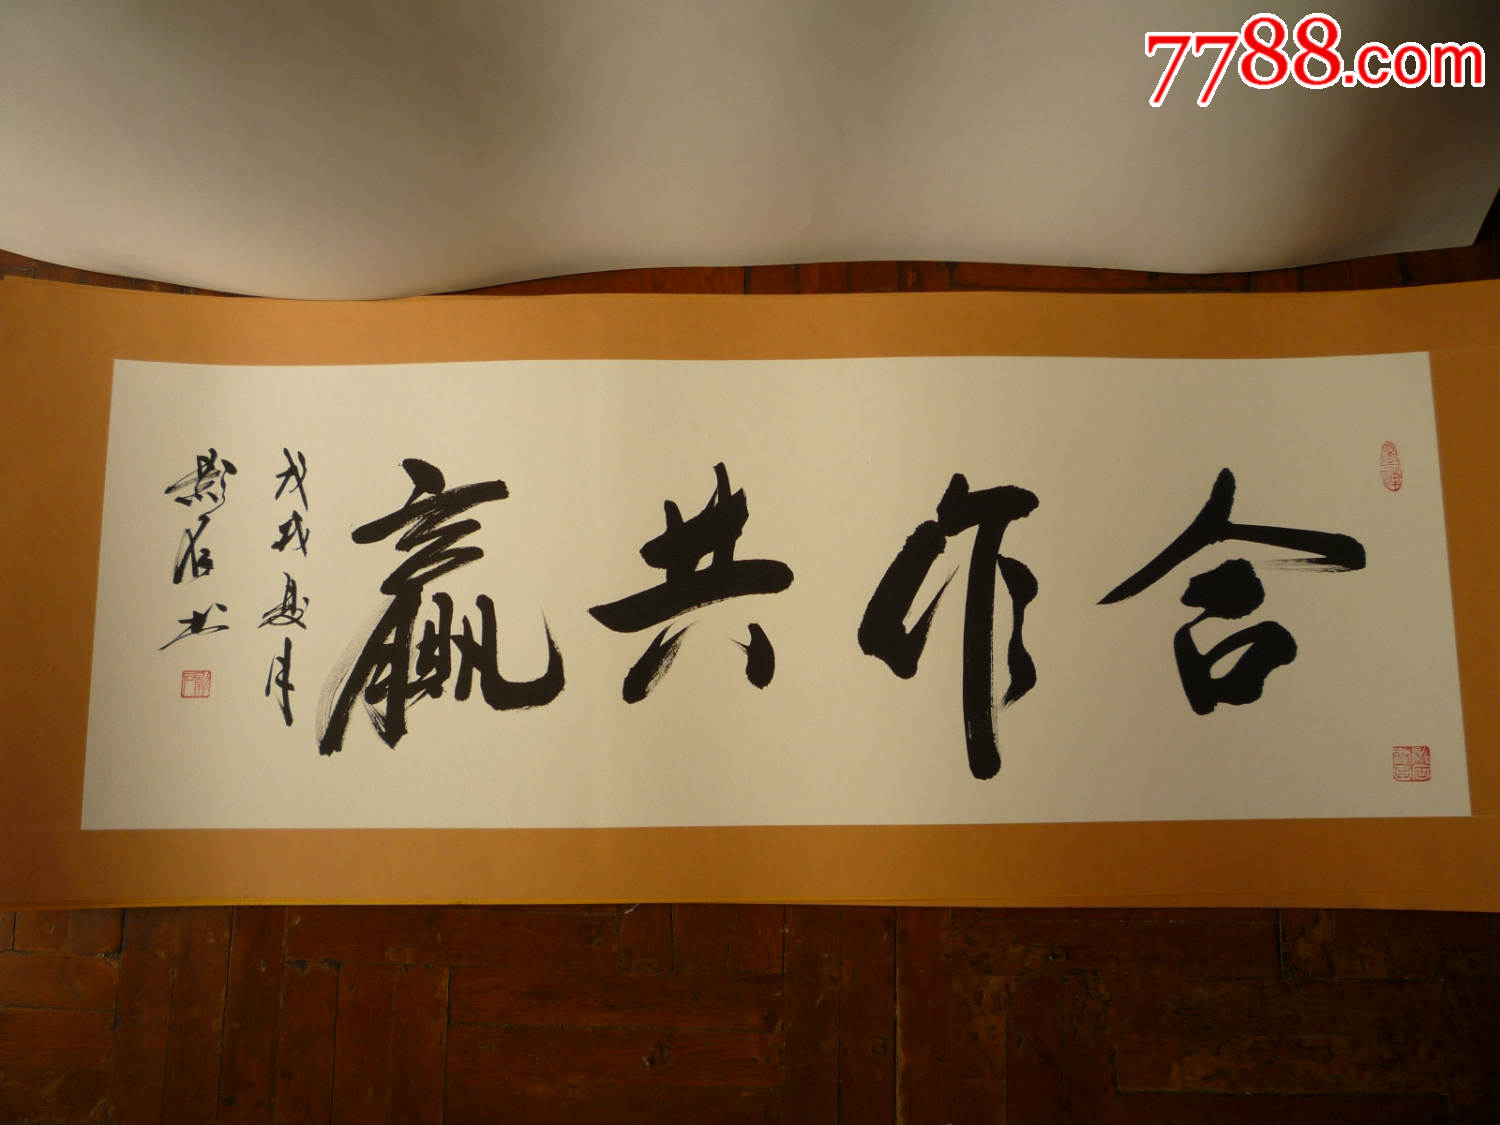 7788.com
合作共赢
戊戌夏月
影石书